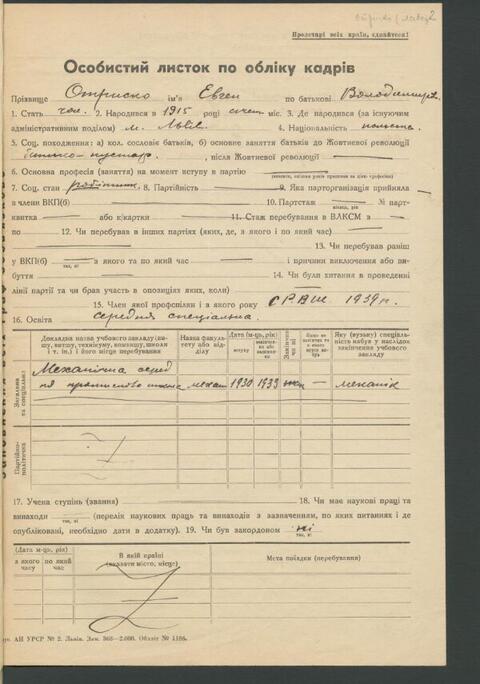 Пролетарі всіх країн, єднайтеся!
Особистий листок по обліку кадрів
Прізвище Отриско ім'я Евген по батькові
1. Стать чол. 2. Народився в 1915 році січень міс. 3. Де народився (за існуючим
адміністративним поділом) м. Львів 4. Національність
5. Соц. походження: а) кол. сословіє батьків, б) основне заняття батьків до Жовтневої революції
, після Жовтневої революції —
6. Основна професія (заняття) на момент вступу в партію —
7. Соц. стан робітник 8. Партійність — 9. Яка парторганізація прийняла
в члени ВКП(б) — 10. Партстаж — № парт-
квитка — або к/картки — 11. Стаж перебування в ВЛКСМ з —
по — 12. Чи перебував в інш. партіях (яких, де, з якого і по який час) —
— 13. Чи перебував раніш
у ВКП(б) — з якого та по який час — і причини виключення або ви-
буття — 14. Чи були хитання в проведенні
лінії партії та чи брав участь в опозиціях яких, коли) —
15. Член якої профспілки і з якого року 1939 р.
16. Освіта середня спеціальна
Докладна назва учбового закладу (ви-
шу, втишу, технікуму, комвишу, школи
і т. ін.) і його місце перебування
Назва факуль-
тету або від-
ділу
Дата (м-ць, рік)
вступу
Яку (вузьку) спеціаль-
ність набув у наслідок
закінчення учбового
закладу
Загальна
та спеціальна
Механічна
по механ 1930 1933 — механік
Партійно-
політична
17. Учена ступінь (звання) — 18. Чи має наукові праці та
винаходи — (перелік наукових праць та винаходів з зазначенням, по яких питаннях і де
опубліковані, необхідно дати в додатку). 19. Чи був закордоном ні
(Дата м-ць, рік)
з якого
часу
по який
час
В якій країні
(вказати місто, місце)
Мета поїздки (перебування)
АН УРСР № 2. Львів. Зам. 368—2.000. Обліт № 1186.